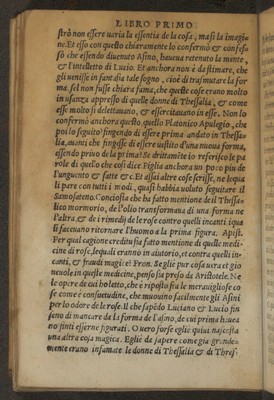 LIBRO PRIMO
strò non essere uaria la essentia de la cosa, ma si la imagine. Et esso con questo chiaramente lo confermò & confes
sò che essendo diuenuto Asino, haueua retenuto la mente,
& l'intelletto di Lucio. Et anchora non è da stimare, che
gli uenisse in fantasia tale sogno, cioè di trasmutare la for
ma, se l non fusse chiara fama, che queste cose erano molto
in usanza appresso di quelle donne di Thessalia, & come
esse molto si delettauano, & essercitauano in esse. Non lo
confermò anchora questo, quello Platonico Apulegio, che
poi lo seguitò fingendo di essere prima andato in Thessa
lia, auanti che fingesse di essere uestito d'una nuoua forma,
essendo priuo de la prima? Se drittamite io referisco le pa
role di quello che così dice. Piglia anchora un poco piu de
l'unguento & fatte &c. Et assai altre cose scrisse, ne lequa
li pare con tutti i modi, quasi habbia uoluto seguitare il
Samosateno. Conciosia che ha fatto mentione de il Thessa
lico mormorio, de l'olio transformana di una forma ne
l'altra, & de i rimedi de le rose contro quelli incanti, i qua
li faceuano ritornare l'huomo a la prima figura. Apist.
Per qual cagione creditu sia fatto mentione di quelle medi
cine di rose, lequali eranno in aiutorio, et contra quelli in-
canti, & fraudi magice? Fron. Se glie pur cosa uera et gio
ueuole in quelle medicine, penso sia preso da Aristotele. Ne
le opere de cui ho letto, che è riposto fra le merauigliose co
se come è consuetudine, che muouino facilmente gli Asini
per lo odore de le rose. Il che sapẽdo Luciano & Lucio fin
seno di mancare de la forma de l'asino, de cui prima haueua
no finti esserne figurati. O uero forse egli è quiui nascosta
una altra cosa magica. Egli è da sapere come gia grande-
mente erano infamate le donne di Thessalia & di Thres-